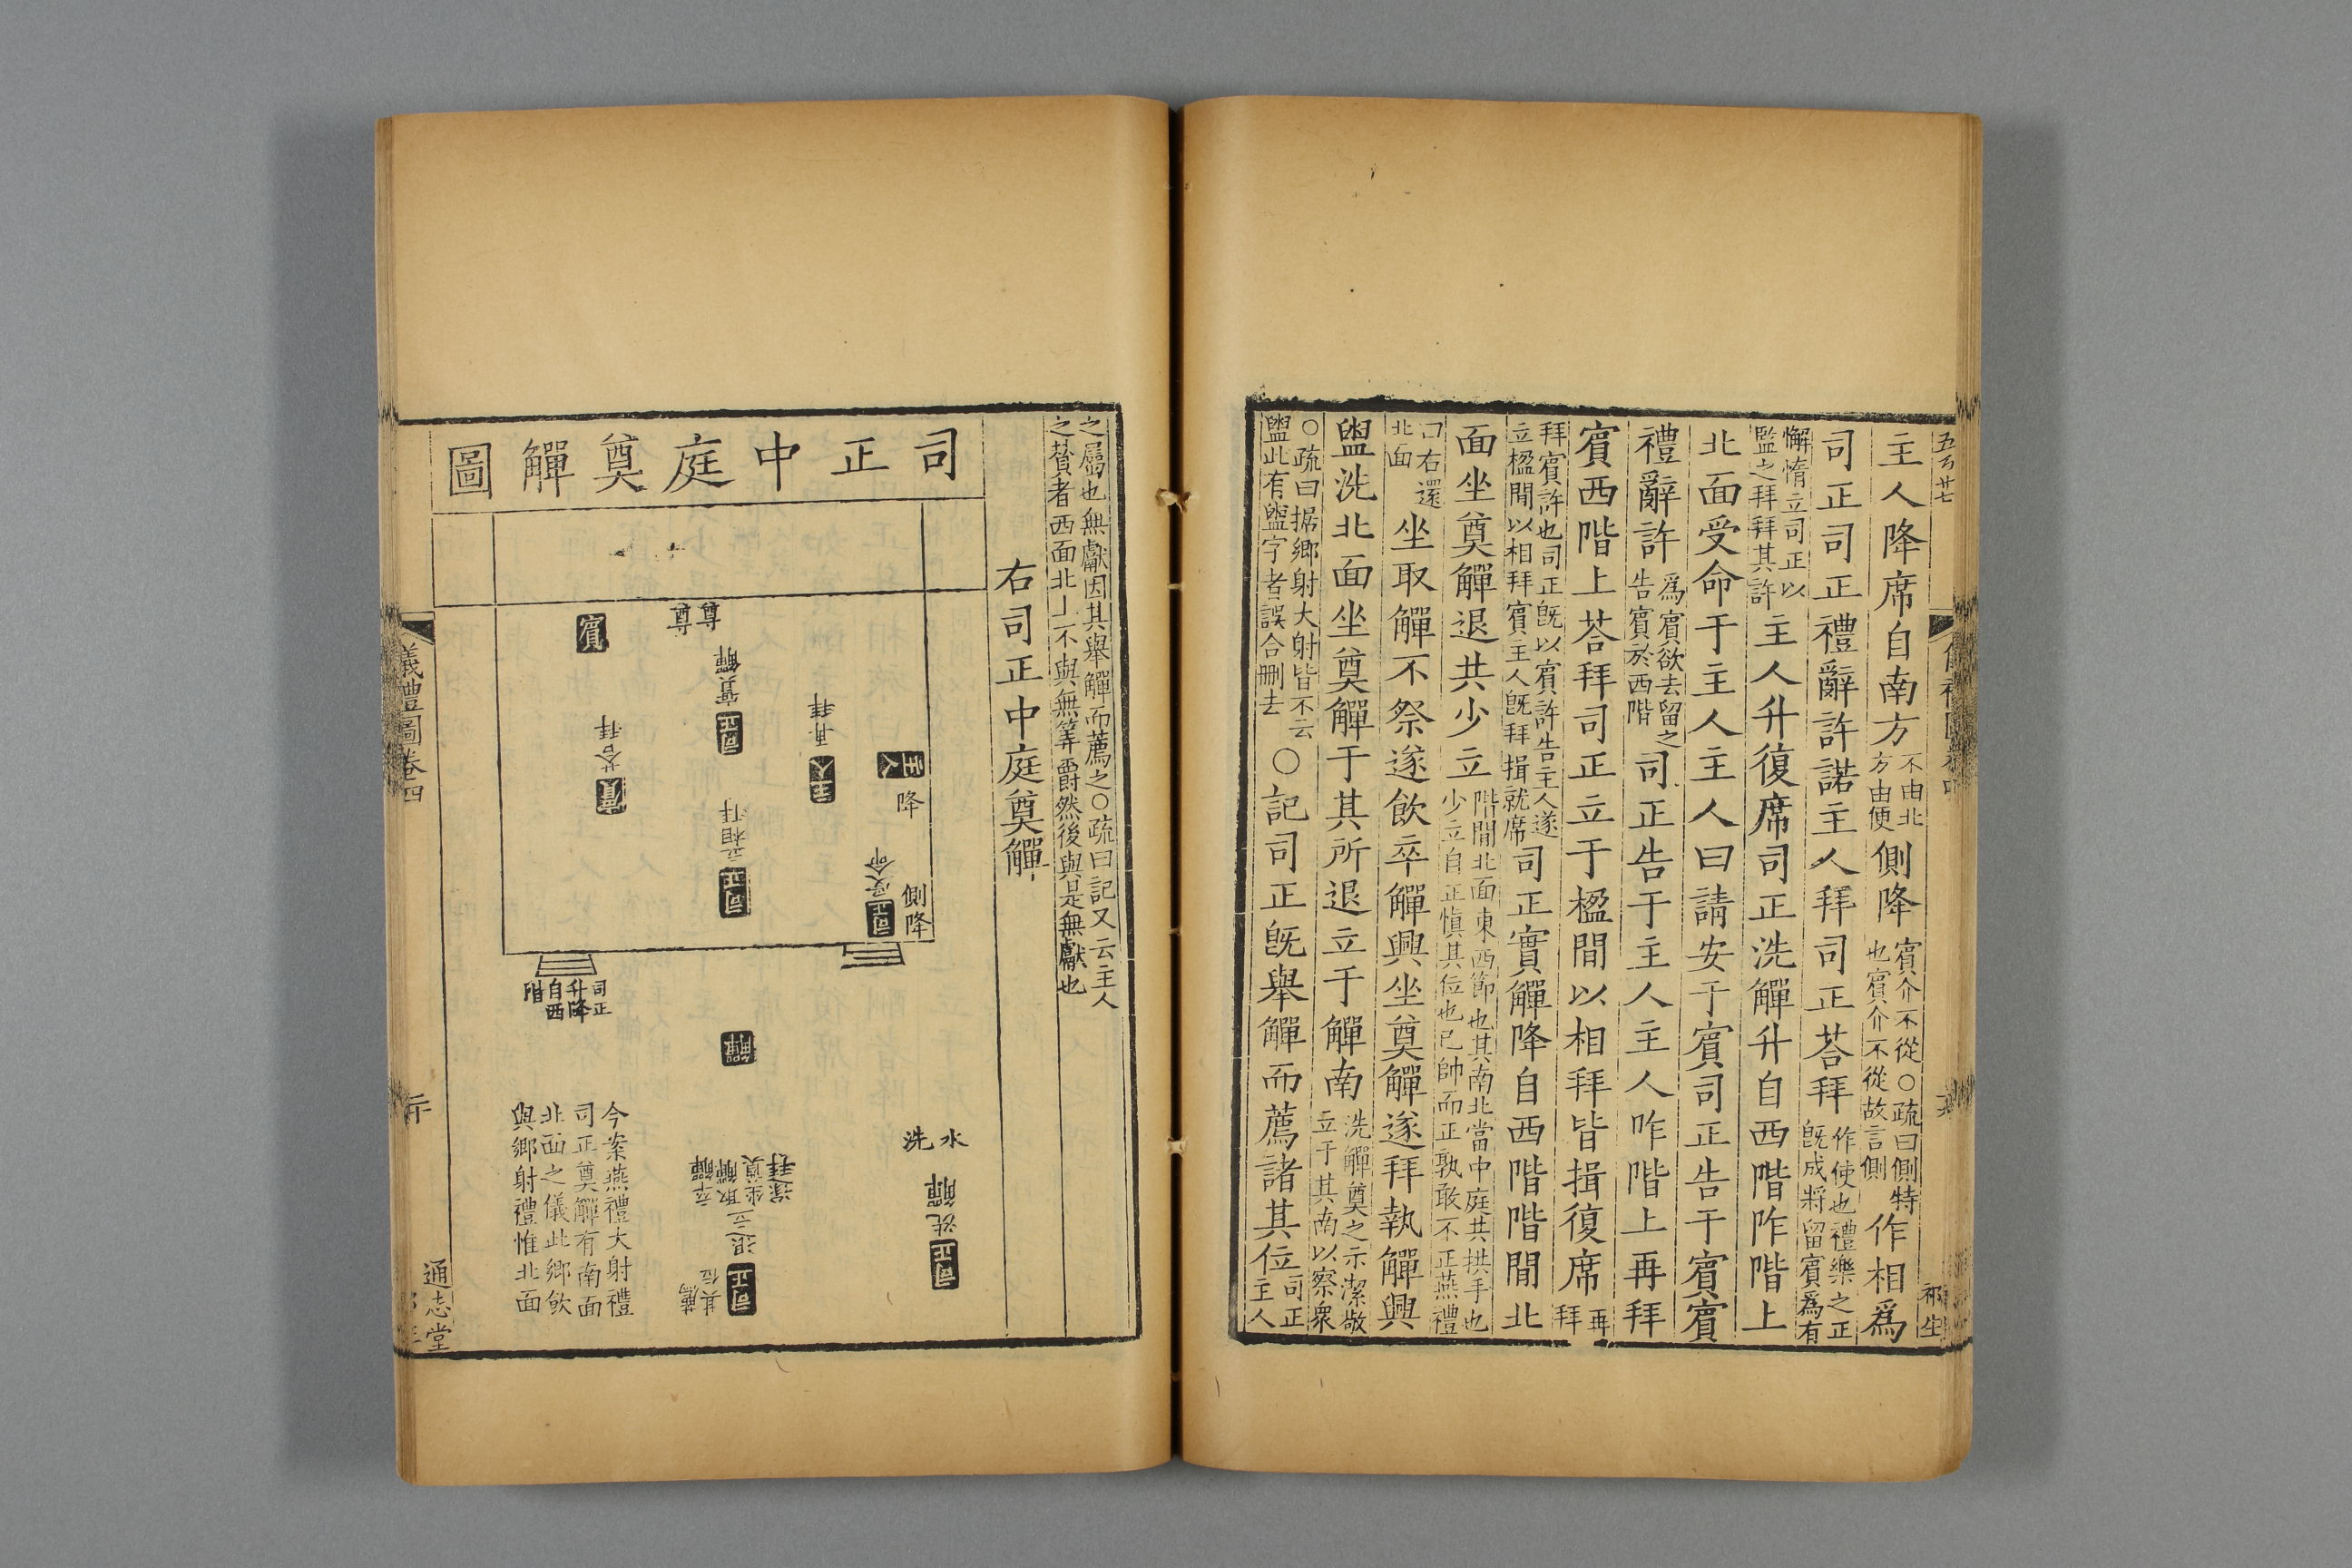 主人降席自南方不由北方由便側降賓介不從○疏曰側特也賓介不從故言側作相爲
司正司正禮辭許諾主人拜司正荅拜作使也禮樂之正既成將留賓爲有
懈惰立司正以監之拜拜其許主人升復席司正洗觶升自西階阼階上
北面受命于主人主人曰請安于賓司正告于賓賓
禮辭許爲賓欲去留之告賓於西階司正告于主人主人阼階上再拜
賓西階上荅拜司正立于楹閒以相拜皆揖復席再拜
拜賓許也司正既以賓許告主人遂立楹閒以相拜賓主人既拜揖就席司正實觶降自西階階閒北
面坐奠觶退共少立階閒北面東西節也其南北當中庭共拱手也少立自正愼其位也已帥而正孰敢不正燕禮
曰右還北面坐取觶不祭遂飲卒觶興坐奠觶遂拜執觶興
盥洗北面坐奠觶于其所退立于觶南洗觶奠之示潔敬立于其南以察衆
○疏曰据鄉射大射皆不云盥此有盥字者誤合刪去○記司正既舉觶而薦諸其位司正主人
之屬也無獻因其舉觶而薦之○疏曰記又云主人之贊者西面北上不與無筭爵然後與是無獻也
右司正中庭奠觶
司正中庭奠觶圖
賓
尊尊
司正實觶
賓荅拜
主人再拜
主人降
司正立相拜
司正受命
側降
司正升降自西階
觶
水
洗
司正洗觶
司正退立
坐取觶
卒觶
坐奠觶
遂拜
其位
薦
今案燕禮大射禮
司正奠觶有南面
北面之儀此鄉飲
與鄉射禮惟北面
儀禮圖卷四
通志堂
祁生